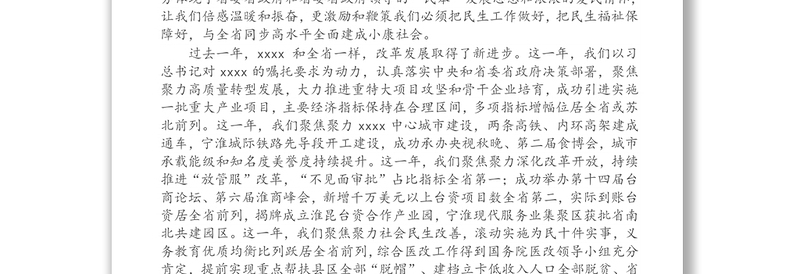 让我们倍感温暖和振奋，更激励和鞭策我们必须把民生工作做好，把民生福祉保
障好，与全省同步高水平全面建成小康社会。
过去一年，xxxx 和全省一样，改革发展取得了新进步。这一年，我们以习
总书记对 xxxx 的嘱托要求为动力，认真落实中央和省委省政府决策部署，聚焦
聚力高质量转型发展，大力推进重特大项目攻坚和骨干企业培育，成功引进实施
一批重大产业项目，主要经济指标保持在合理区间，多项指标增幅位居全省或苏
北前列。这一年，我们聚焦聚力 xxxx 中心城市建设，两条高铁、内环高架建成
通车，宁淮城际铁路先导段开工建设，成功承办央视秋晚、第二届食博会，城市
承载能级和知名度美誉度持续提升。这一年，我们聚焦聚力深化改革开放，持续
推进“放管服”改革，“不见面审批”占比指标全省第一；成功举办第十四届台
商论坛、第六届淮商峰会，新增千万美元以上台资项目数全省第二，实际到账台
资居全省前列，揭牌成立淮昆台资合作产业园，宁淮现代服务业集聚区获批省南
北共建园区。这一年，我们聚焦聚力社会民生改善，滚动实施为民十件实事，义
务教育优质均衡比列跃居全省前列，综合医改工作得到国务院医改领导小组充分
肯定，提前实现重点帮扶县区全部“脱帽”、建档立卡低收入人口全部脱贫、省